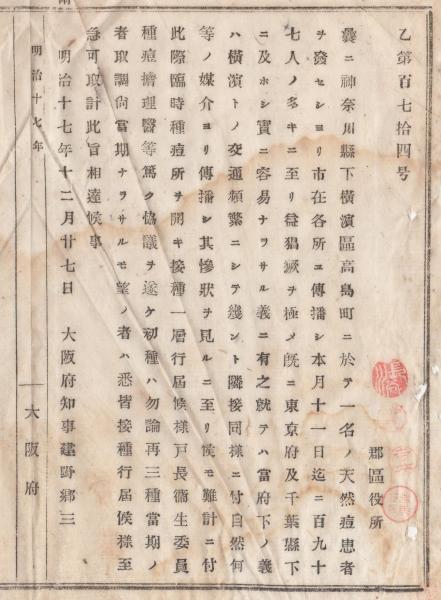 乙第百七拾四号
郡區役所
曩ニ神奈川縣下横濱區高島町ニ於テ一名ノ天然痘患者
ヲ發セシヨリ市在各所ニ傳播シ本月十一日迄ニ二百九十
七人ノ多キニ至リ益猖獗ヲ極メ既ニ東京府及千葉縣下
ニ及ホシ實ニ容易ナラサル義ニ有之就テハ當府下ノ義
ハ横濱トノ交通頻繁ニシテ殘ント隣接同様ニ付自然何
等ノ媒介ヨリ傳播シ其惨狀ヲ見ルニ至リ候モ難計ニ付
此際臨時種痘所ヲ開キ接種一層行届候様戸長衞生委員
種痘擔理醫等篤ク協議ヲ遂ケ初種ハ勿論再三種當期ノ
者取調尚當期ナラサルモ望ノ者ハ悉皆接種行届候様至
急可取計此旨相達候事
明治十七年十二月廿七日　大阪府知事建野郷三
明治十七年
大阪府